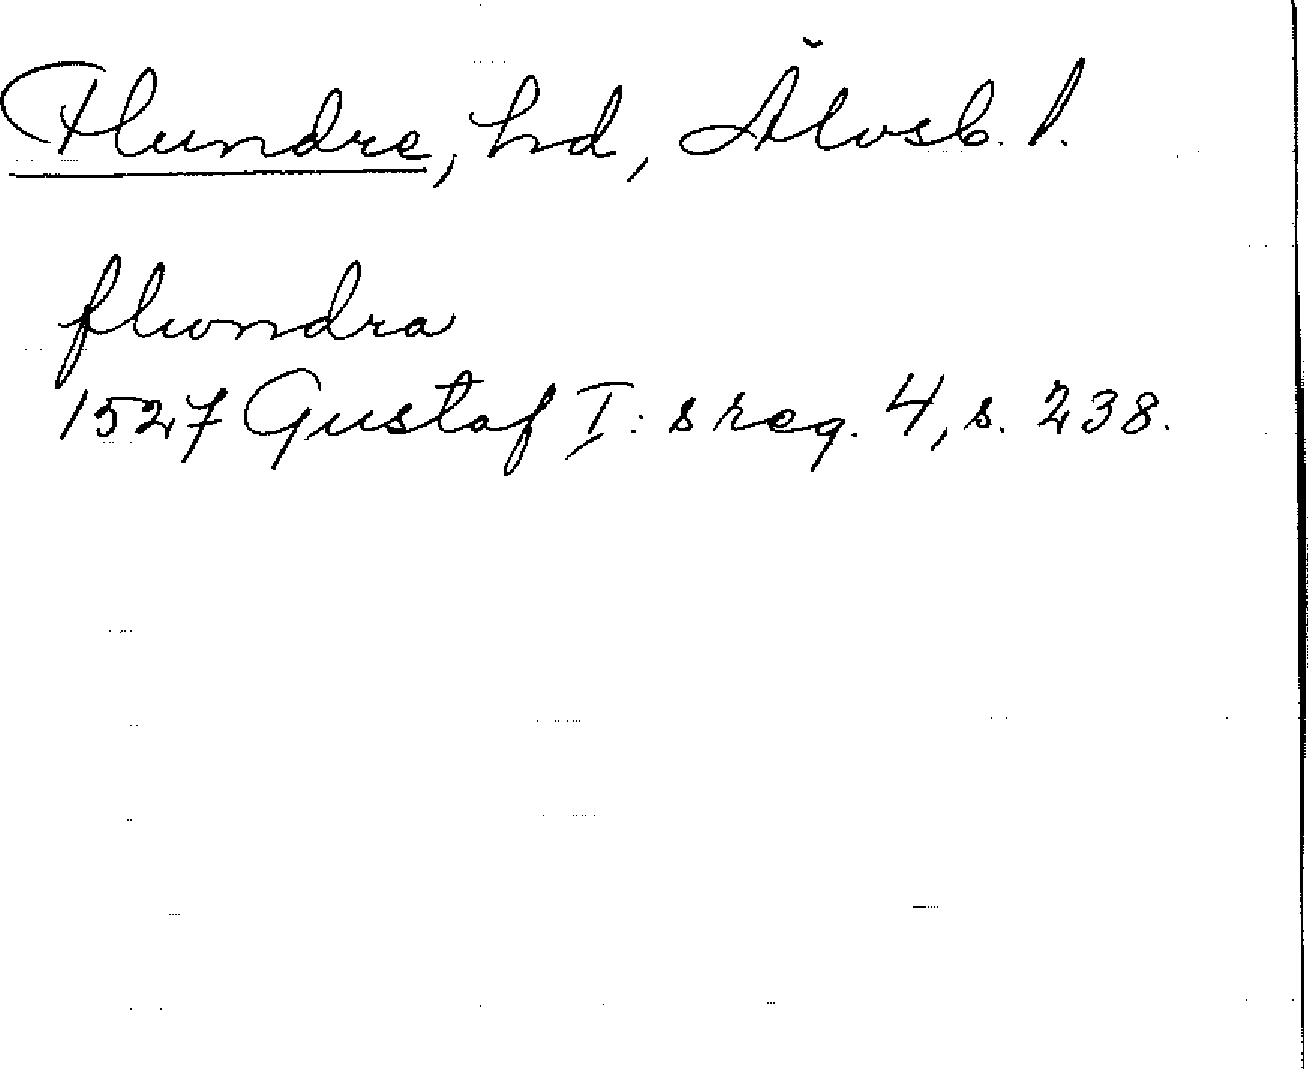 Flundre, hd, Älvsb. l.
flundra
1527 Gustaf I: s reg. 4, s. 238.